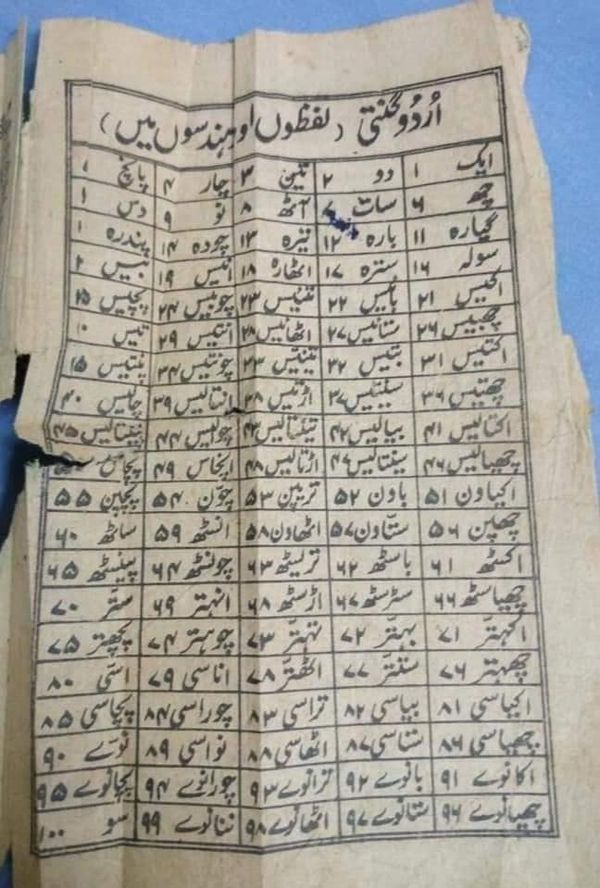 اُردُو گنتی (لفظوں اور ہندسوں میں)
ایک ۱ دو ۲ تین ۳ چار ۴ پانچ
چھ ۶ سات ۷ آٹھ ۸ نو ۹ دس
گیارہ ۱۱ بارہ ۱۲ تیرہ ۱۳ چودہ ۱۴ پندرہ
سولہ ۱۶ سترہ ۱۷ اٹھارہ ۱۸ انیس ۱۹ بیس
اکیس ۲۱ بائیس ۲۲ تئیس ۲۳ چوبیس ۲۴ پچیس ۲۵
چھبیس ۲۶ ستائیس ۲۷ اٹھائیس ۲۸ انتیس ۲۹ تیس
اکتیس ۳۱ بتیس ۳۲ تینتیس ۳۳ چونتیس ۳۴ پنتیس
چھتیس ۳۶ سینتیس ۳۷ اڑتیس ۳۸ انتالیس ۳۹ چالیس ۴۰
اکتالیس ۴۱ بیالیس ۴۲ تینتالیس ۴۳ چوالیس ۴۴ پینتالیس ۴۵
چھیالیس ۴۶ سینتالیس ۴۷ اڑتالیس ۴۸ انچاس ۴۹ پچاس
اکیاون ۵۱ باون ۵۲ تریپن ۵۳ چوّن ۵۴ پچپن ۵۵
چھپن ۵۶ ستاون ۵۷ اٹھاون ۵۸ انسٹھ ۵۹ ساٹھ ۶۰
اکسٹھ ۶۱ باسٹھ ۶۲ تریسٹھ ۶۳ چونسٹھ ۶۴ پینسٹھ ۶۵
چھیاسٹھ ۶۶ سڑسٹھ ۶۷ اڑسٹھ ۶۸ انہتر ۶۹ ستّر ۷۰
اکہتر ۷۱ بہتر ۷۲ تہتر ۷۳ چوہتر ۷۴ پچھتر ۷۵
چھہتر ۷۶ ستتر ۷۷ اٹھتر ۷۸ اناسی ۷۹ اسّی ۸۰
اکیاسی ۸۱ بیاسی ۸۲ تراسی ۸۳ چوراسی ۸۴ پچاسی ۸۵
چھیاسی ۸۶ ستاسی ۸۷ اٹھاسی ۸۸ نواسی ۸۹ نوّے ۹۰
اکانوے ۹۱ بانوے ۹۲ ترانوے ۹۳ چورانوے ۹۴ پچانوے ۹۵
چھیانوے ۹۶ ستانوے ۹۷ اٹھانوے ۹۸ ننانوے ۹۹ سو ۱۰۰